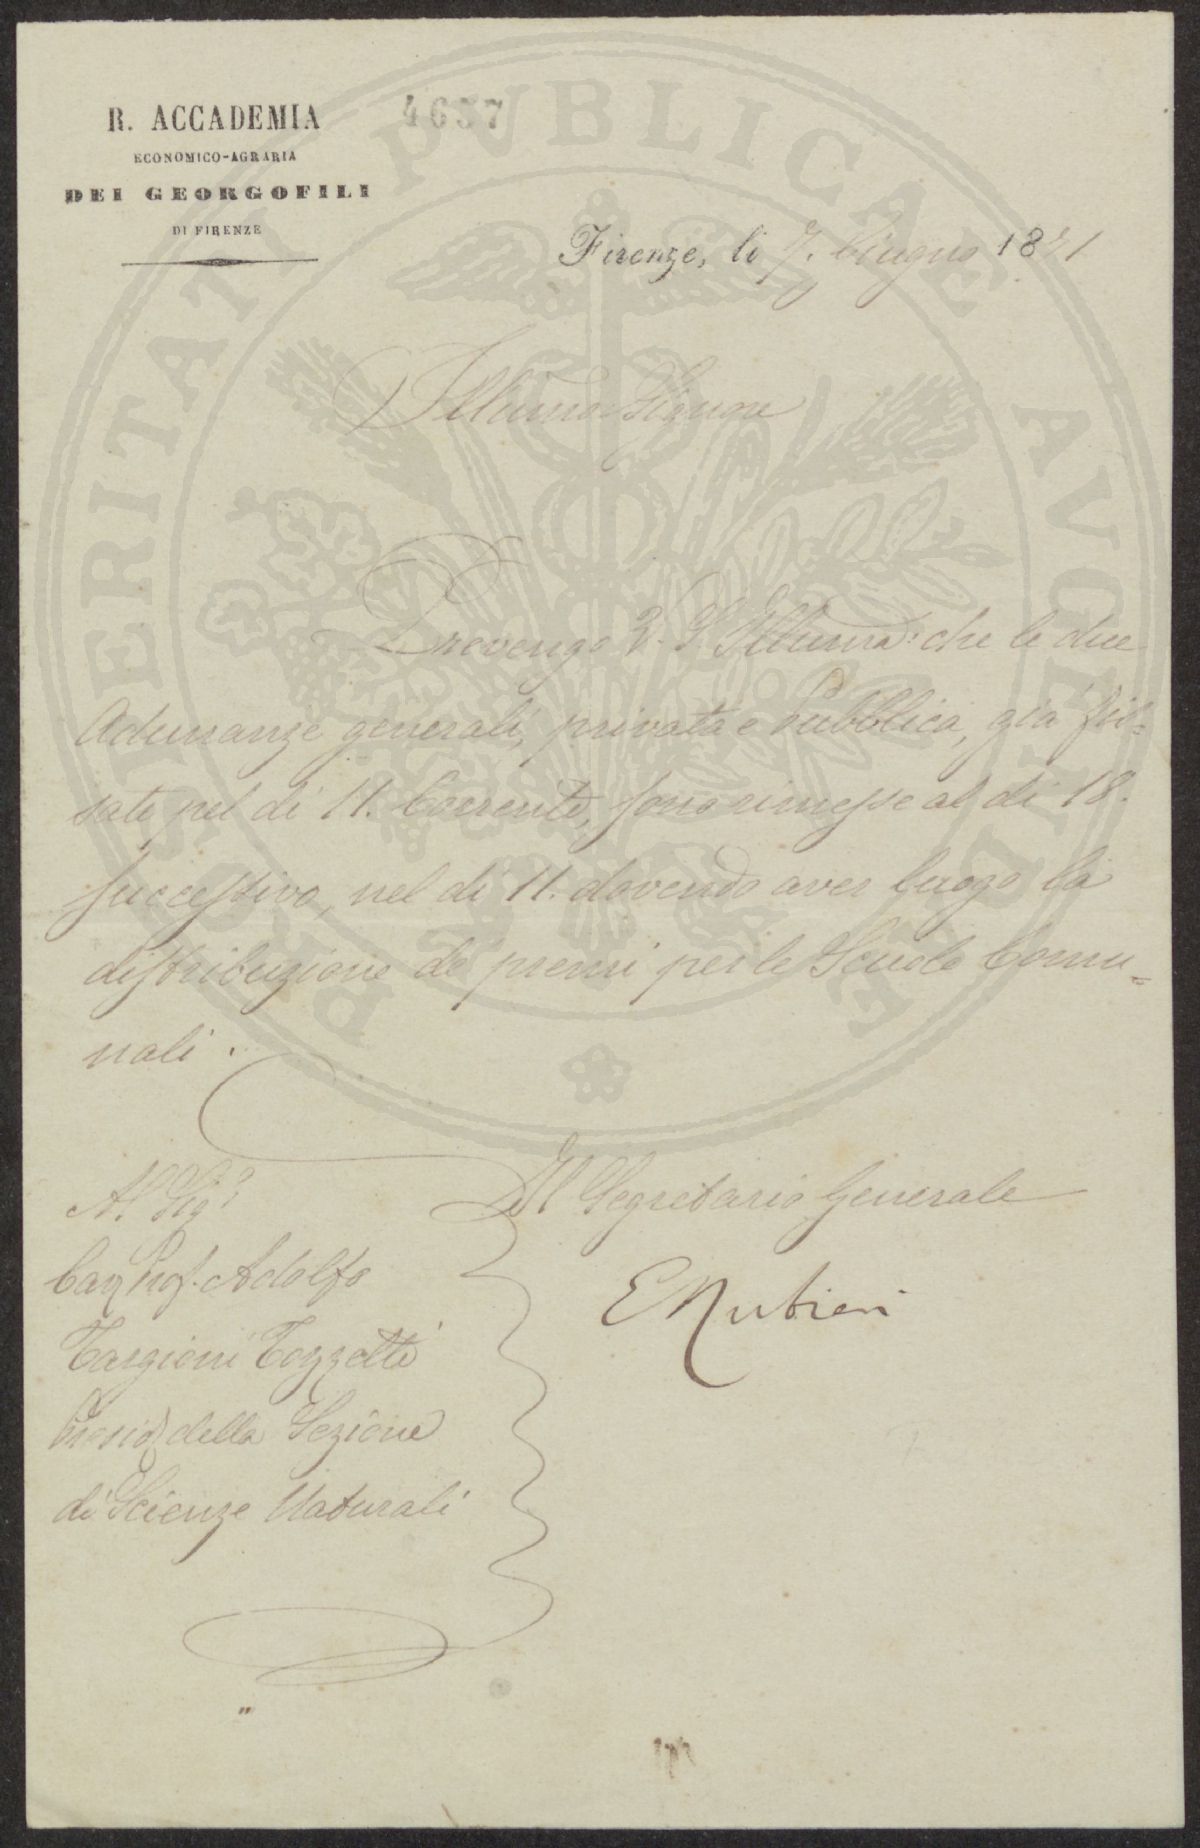 R. ACCADEMIA
ECONOMICO-AGRARIA
DEI GEORGOFILI
DI FIRENZE
4637
PROSPERITATI PVBLICAE AVGENDAE
Firenze, li 7. Giugno 1871
Illumo Signore
Prevengo V. S. Illuma: che le due
Adunanze generali, privata e Pubblica, già fis=
sate pel dì 11. Corrente, sono rimesse al dì 18.
successivo, nel dì 11. dovendo aver luogo la
distribuzione de' premi per le Scuole Comu=
nali.
Il Segretario Generale
E Rubieri
Al Sigr
Cav Prof. Adolfo
Targioni Tozzetti
Presid della Sezione
di Scienze Naturali